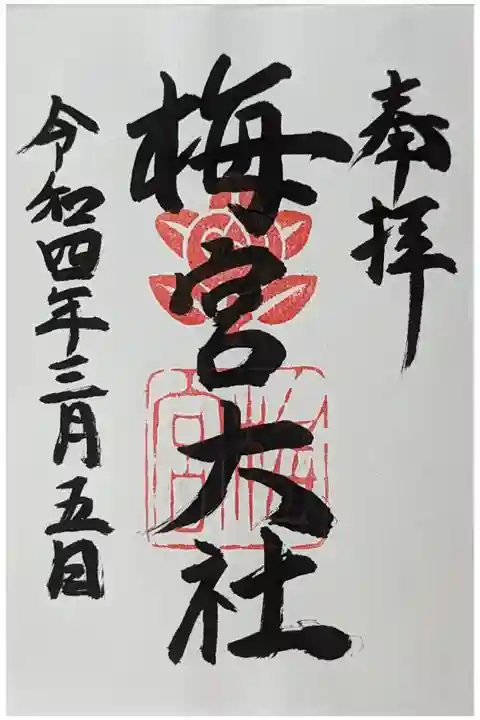 奉拝
梅宮大社
令和四年三月五日
梅宮